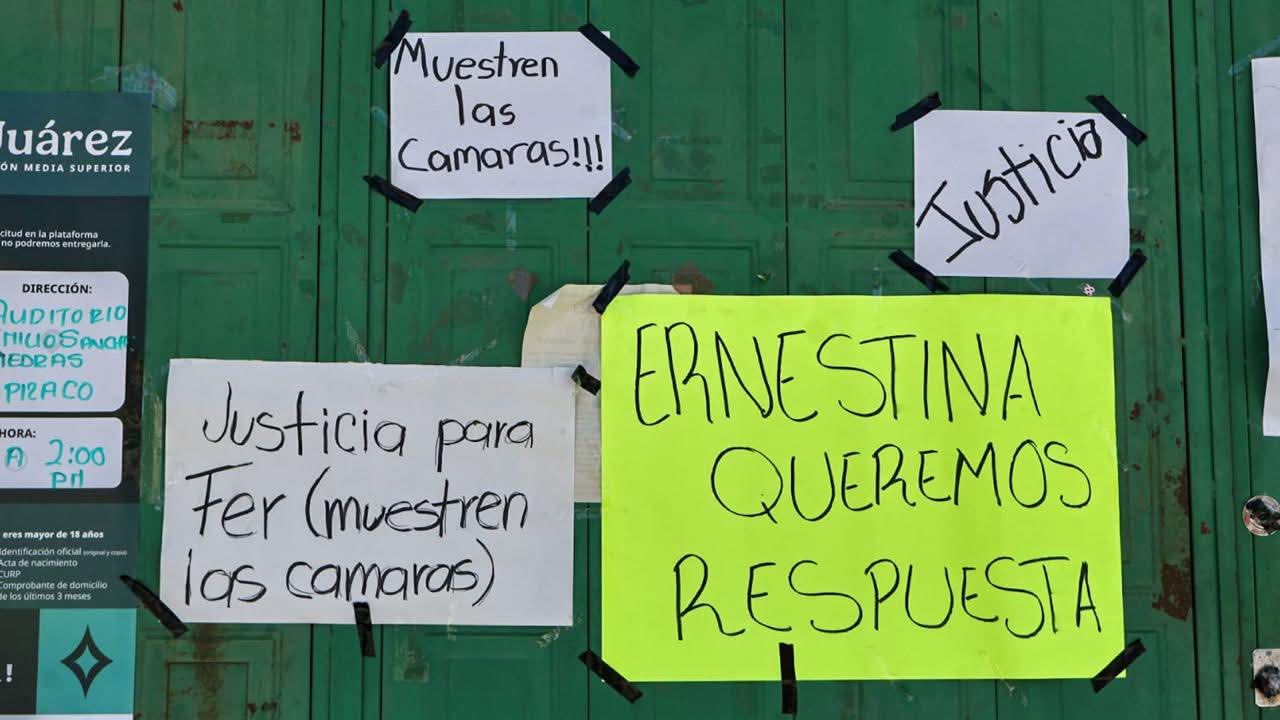 Juárez
ÓN MEDIA SUPERIOR
citud en la plataforma
no podremos entregarla.
DIRECCIÓN:
AUDITORIO
EMILIO SANCHE
IEDRAS
PIZACO
HORA:
A 2:00
PM
eres mayor de 18 años
Identificación oficial (original y copia)
Acta de nacimiento
CURP
Comprobante de domicilio
de los últimos 3 meses
!
Muestren
las
Camaras!!!
Justicia
Justicia para
Fer (muestren
las camaras)
ERNESTINA
QUEREMOS
RESPUESTA